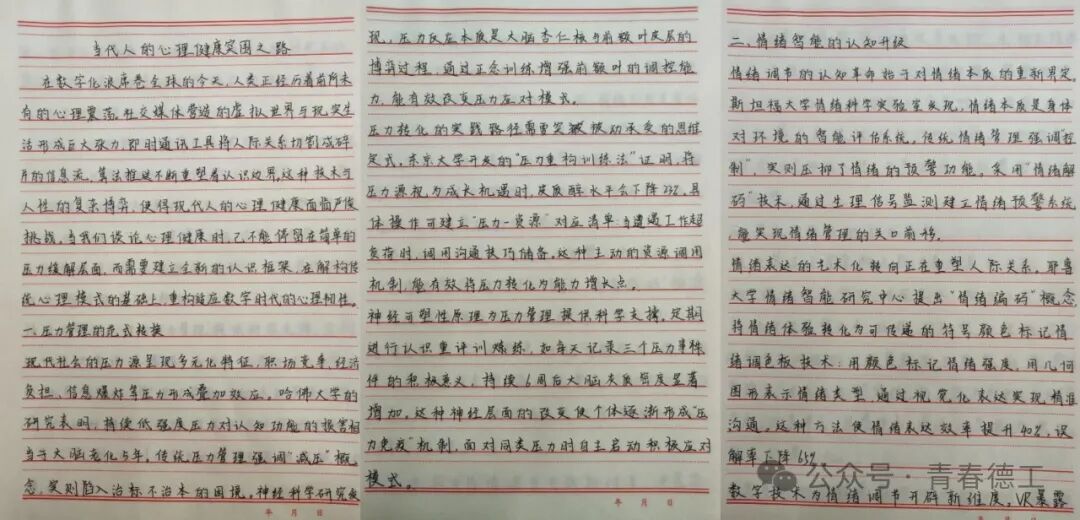 当代人的心理健康突围之路
在数字化浪席卷全球的今天,人类正经历着前所未
有的心理震荡。社交媒体营造的虚拟世界与现实生
活形成巨大张力,即时通讯工具将人际关系切割成碎
片的信息流,算法推送不断重塑着认识边界。这种技术与
人性的复杂博弈,使得现代人的心理健康面临严峻
挑战。当我们谈论心理健康时,已不能停留在简单的
压力缓解层面,而需要建立全新的认识框架,在解构传
统心理模式的基础上,重构适应数字时代的心理韧性。
一.压力管理的范式转换
现代社会的压力源呈现多元化特征,职场竞争、经济
负担、信息爆炸等压力形成叠加效应。哈佛大学的
研究表明,持续低强度压力对认知功能的损害相
当于大脑老化5年。传统压力管理强调"减压"概
念,实则陷入治标不治本的困境。神经科学研究发
年 月 日
现,压力反应本质是大脑杏仁核与前额叶皮层的
博弈过程,通过正念训练增强前额叶的调控能
力,能有效改变压力应对模式。
压力转化的实践路径需要突破被动承受的思维
定式,东京大学开发的"压力重构训练法"证明,将
压力源视为成长机遇时,皮质醇水平会下降23%,具
体操作可建立"压力—资源"对应清单:当遭遇工作超
负荷时,调用沟通技巧储备,这种主动的资源调用
机制,能有效将压力转化为能力增长点。
神经可塑性原理为压力管理提供科学支撑。定期
进行认识重评训炼练,如每天记录三个压力事件
件的积极意义,持续6周后大脑灰质密度显著
增加。这种神经层面的改变使个体逐渐形成"压
力免疫"机制,面对同类压力时自主启动积极应对
模式。
年 月 日
二.情绪智能的认知升级
情绪调节的认知革命始于对情绪本质的重新界定。
斯坦福大学情绪科学实验室发现,情绪本质是身体
对环境的智能评估系统。传统情绪管理强调控
制",实则压抑了情绪的预警功能。采用"情绪解
码"技术,通过生理信号监测建立情绪预警系统
,能实现情绪管理的关口前移。
情绪表达的艺术化转向正在重塑人际关系,耶鲁
大学情绪智能研究中心提出"情绪编码"概念
将情绪体验转化为可传递的符号颜色标记情
绪调色板技术:用颜色标记情绪强度,用几何
图形表示情绪类型,通过视觉化表达实现精准
沟通。这种方法使情绪表达效率提升40%,误
解率下降65%
数字技术为情绪调节开辟新维度。VR暴露
年 月 日
公众号·青春德工